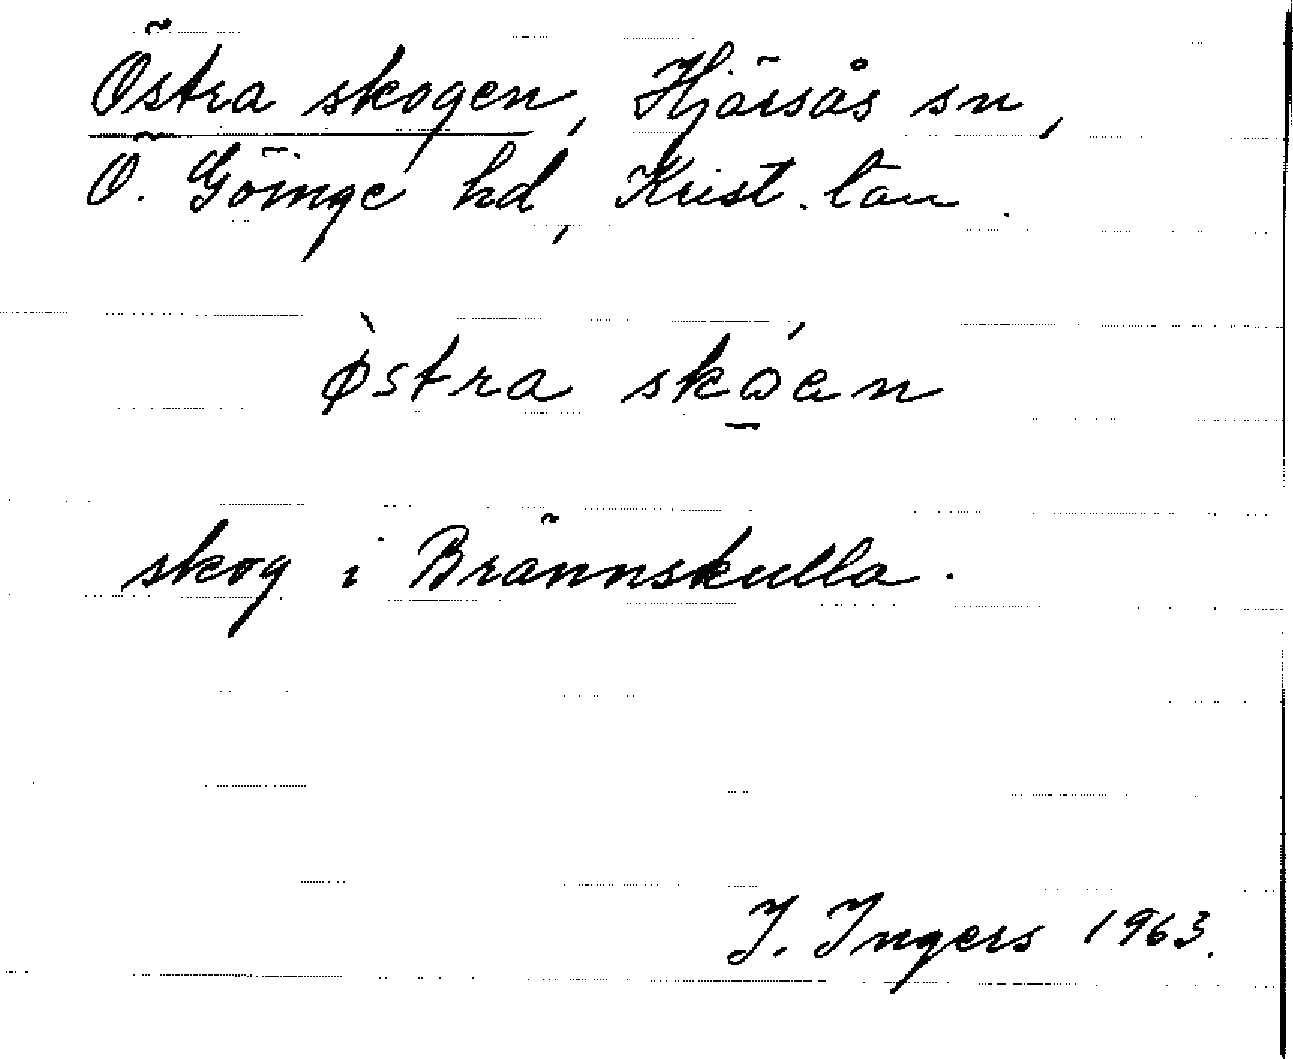 Östra skogen, Hjärsås sn,
Ö. Göinge hd, Krist. län.
ø̀stra skó̱an
skog i Brännskulla.
I. Ingers 1963.